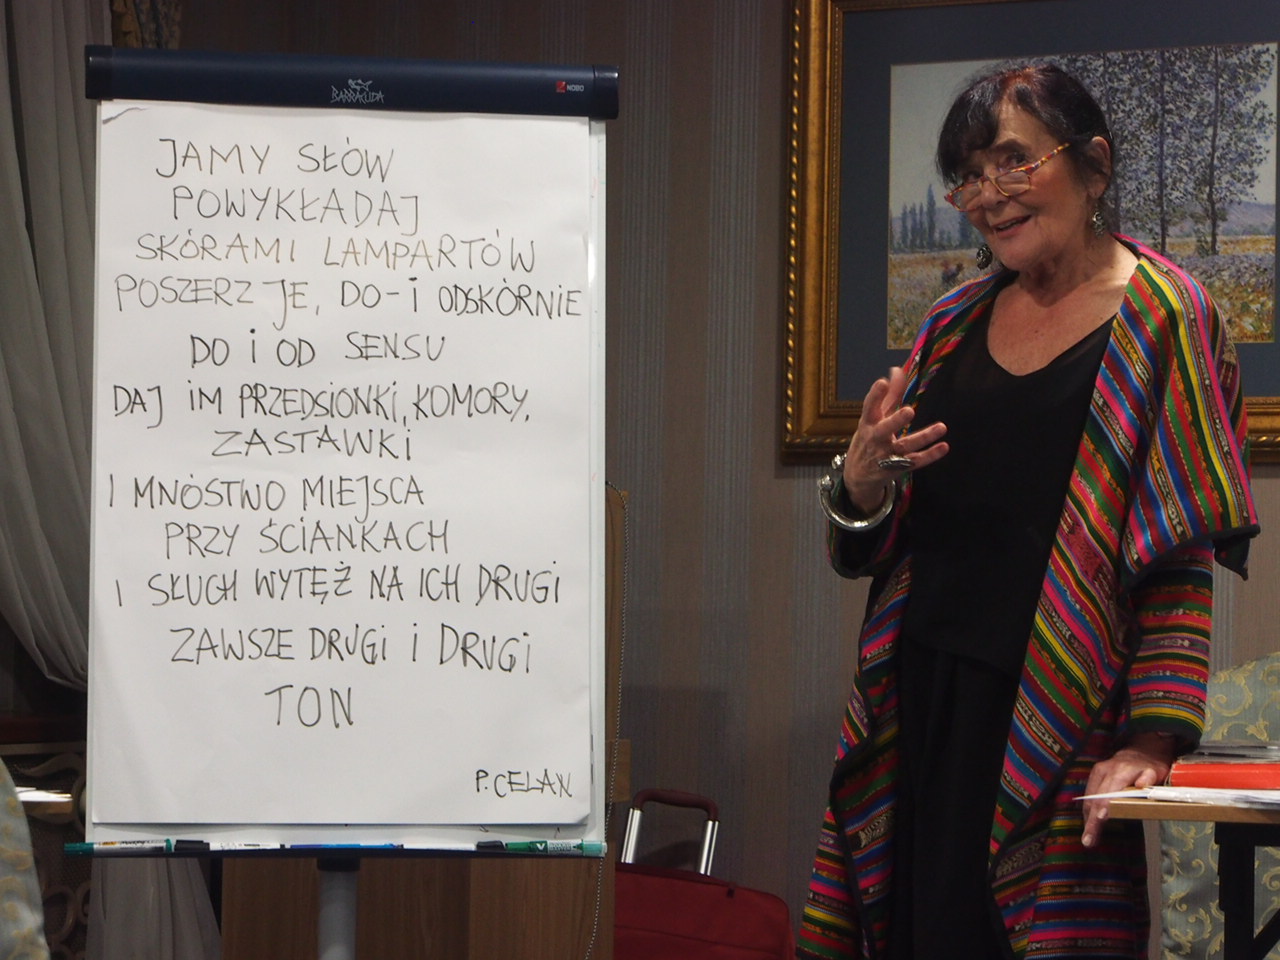 BARRACUDA
NOBO
JAMY SŁÓW
POWYKŁADAJ
SKÓRAMI LAMPARTÓW
POSZERZ JE, DO-I ODSKÓRNIE
DO i OD SENSU
DAJ iM PRZEDSIONKI, KOMORY,
ZASTAWKI
I MNÓSTWO MIEJSCA
PRZY ŚCIANKACH
I SŁUCH WYTĘŻ NA ICH DRUGI
ZAWSZE DRUGI I DRUGI
TON
P. CELAN